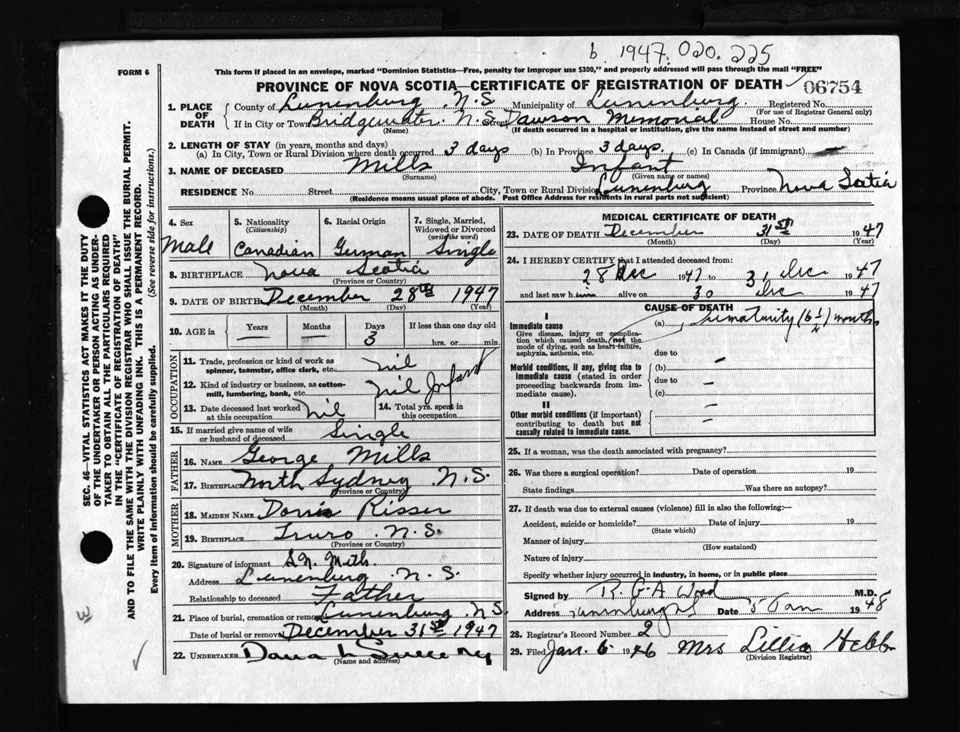 b. 1947. 020. 225
FORM 6
This form if placed in an envelope, marked "Dominion Statistics—Free, penalty for improper use $300," and properly addressed will pass through the mail "FREE"
PROVINCE OF NOVA SCOTIA—CERTIFICATE OF REGISTRATION OF DEATH
06754
1. PLACE OF DEATH
County of Lunenburg N.S. Municipality of Lunenburg. Registered No.
(For use of Registrar General only)
If in City or Town Bridgewater N.S. Street Dawson Memorial House No.
(Name) (If death occurred in a hospital or institution, give the name instead of street and number)
2. LENGTH OF STAY (in years, months and days)
(a) In City, Town or Rural Division where death occurred 3 days (b) In Province 3 days. (c) In Canada (if immigrant) —
3. NAME OF DECEASED Mills Infant
(Surname) (Given name or names)
RESIDENCE No. Street City, Town or Rural Division Lunenburg Province Nova Scotia
(Residence means usual place of abode. Post Office Address for residents in rural parts not sufficient)
SEC. 46—VITAL STATISTICS ACT MAKES IT THE DUTY
OF THE UNDERTAKER OR PERSON ACTING AS UNDER-
TAKER TO OBTAIN ALL THE PARTICULARS REQUIRED
IN THE "CERTIFICATE OF REGISTRATION OF DEATH"
AND TO FILE THE SAME WITH THE DIVISION REGISTRAR WHO SHALL ISSUE THE BURIAL PERMIT.
WRITE PLAINLY WITH UNFADING INK. THIS IS A PERMANENT RECORD.
Every item of Information should be carefully supplied. (See reverse side for instructions.)
4. Sex
Male
5. Nationality
(Citizenship)
Canadian
6. Racial Origin
German
7. Single, Married,
Widowed or Divorced
(write the word)
Single
8. BIRTHPLACE Nova Scotia
(Province or Country)
9. DATE OF BIRTH December 28th 1947
(Month) (Day) (Year)
10. AGE in Years Months Days If less than one day old
— — 3 hrs. or min.
OCCUPATION
11. Trade, profession or kind of work as
spinner, teamster, office clerk, etc. nil
12. Kind of industry or business, as cotton-
mill, lumbering, bank, etc. nil Infant
13. Date deceased last worked
at this occupation nil
14. Total yrs. spent in
this occupation
15. If married give name of wife
or husband of deceased Single
FATHER
16. NAME George Mills
17. BIRTHPLACE North Sydney N.S.
(Province or Country)
MOTHER
18. MAIDEN NAME Doris Risser
19. BIRTHPLACE Truro N.S.
(Province or Country)
20. Signature of informant
Address Lunenburg N.S.
Relationship to deceased Father
21. Place of burial, cremation or removal Lunenburg N.S.
Date of burial or removal December 31st 1947
22. UNDERTAKER
(Name and address)
MEDICAL CERTIFICATE OF DEATH
23. DATE OF DEATH December 31st 1947
(Month) (Day) (Year)
24. I HEREBY CERTIFY that I attended deceased from:
28 Dec 1947 to 31 Dec 1947
and last saw him alive on 30 Dec 1947
CAUSE OF DEATH
I
Immediate cause
Give disease, injury or complica-
tion which caused death, not the
mode of dying, such as heart failure,
asphyxia, asthenia, etc.
(a) Prematurity (6½) months
due to —
Morbid conditions, if any, giving rise to
immediate cause (stated in order
proceeding backwards from im-
mediate cause).
(b)
due to —
(c)
II
Other morbid conditions (if important)
contributing to death but not
causally related to immediate cause.
—
25. If a woman, was the death associated with pregnancy?
26. Was there a surgical operation? Date of operation 19
State findings Was there an autopsy?
27. If death was due to external causes (violence) fill in also the following:—
Accident, suicide or homicide? Date of injury 19
(State which)
Manner of injury
(How sustained)
Nature of injury
Specify whether injury occurred in industry, in home, or in public place
Signed by R. G. A. Wood M.D.
Address Lunenburg NS Date 5 Jan 1948
28. Registrar's Record Number 2
29. Filed Jan. 6 1946 Mrs Lillia Hebb
(Division Registrar)